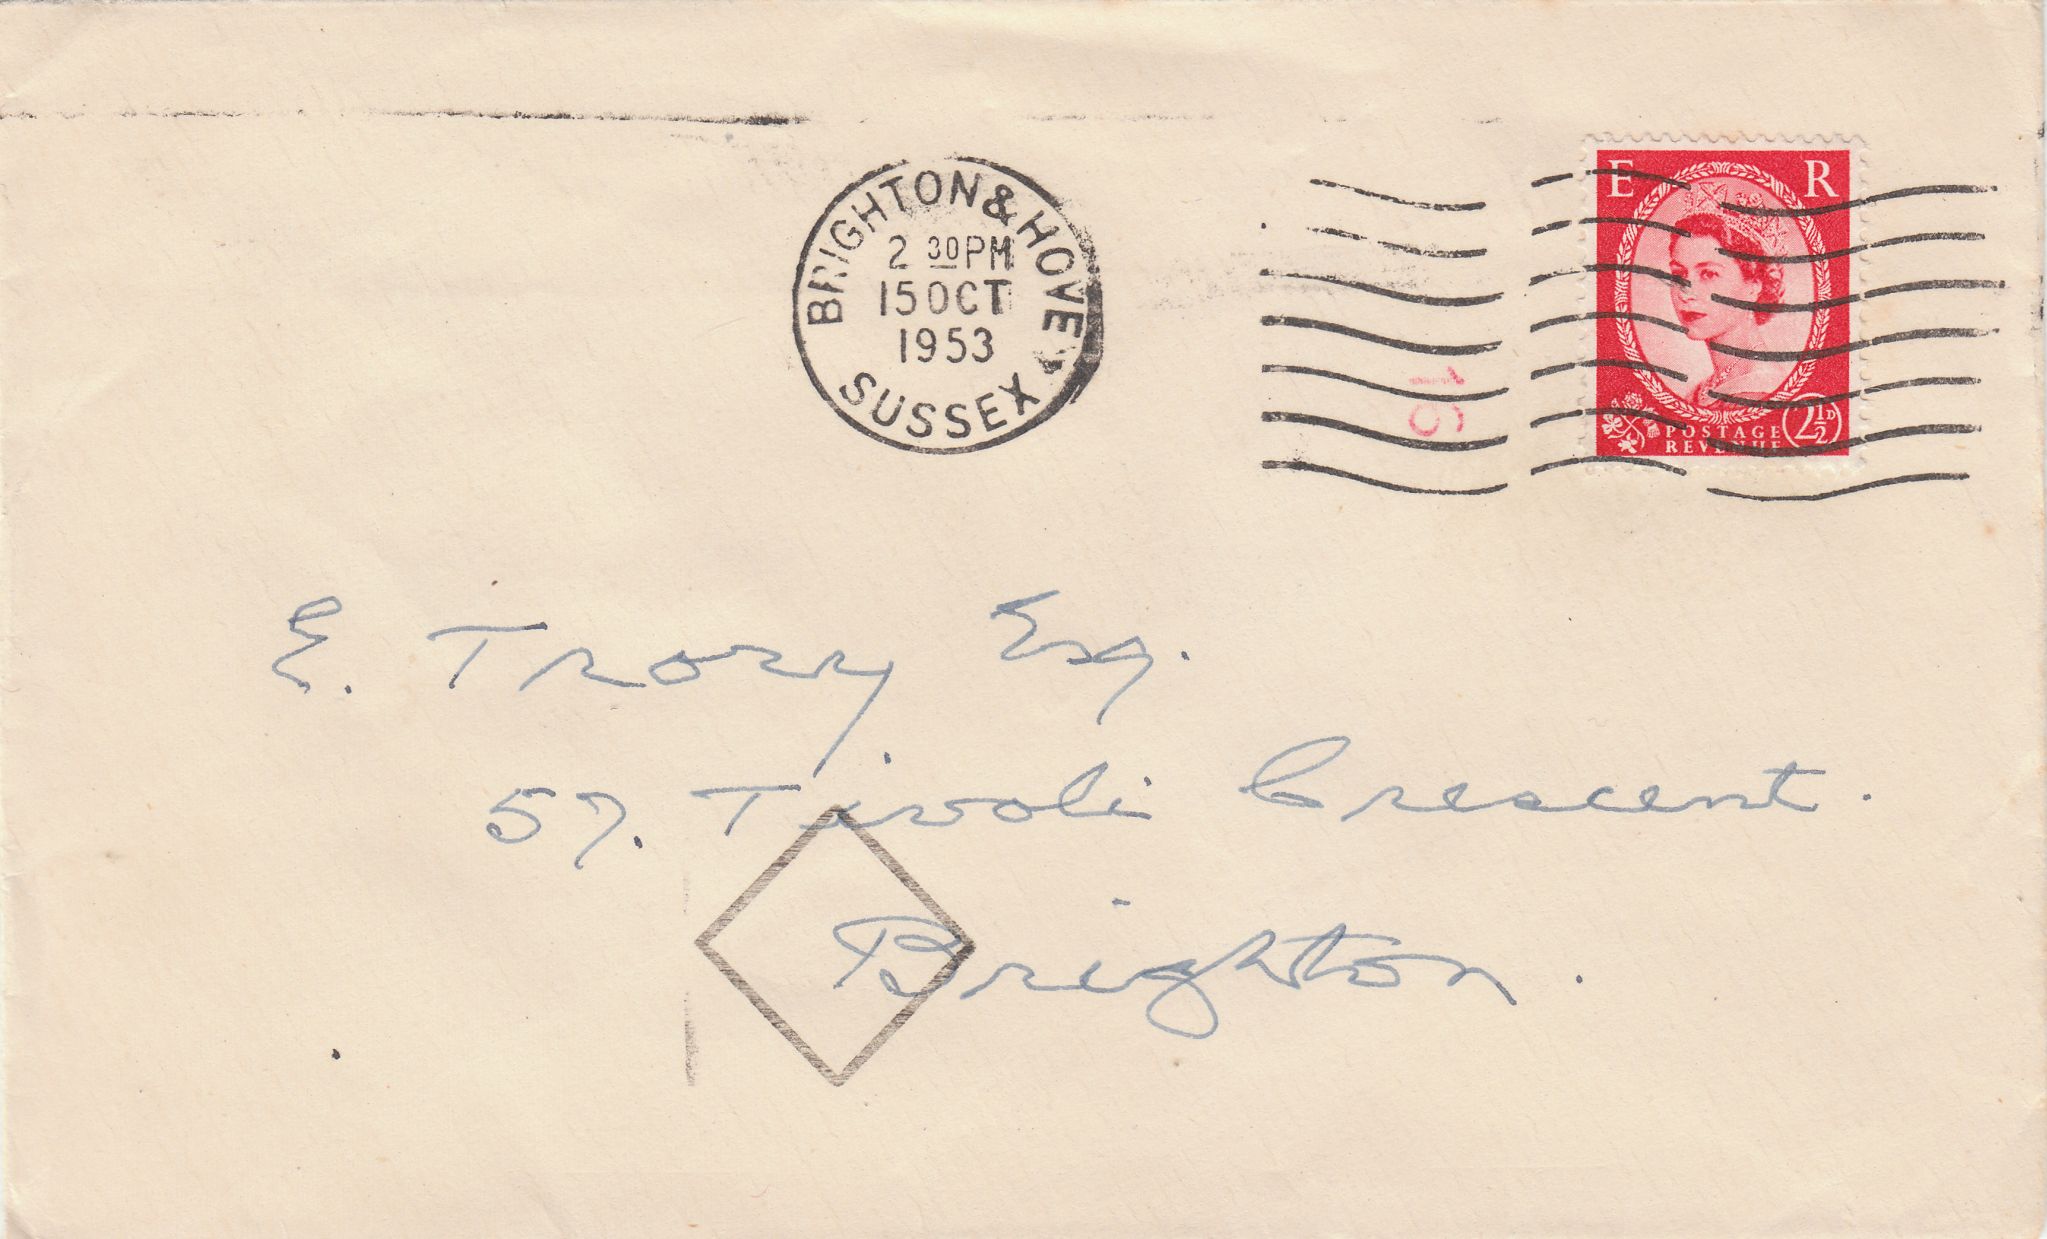 BRIGHTON & HOVE
2 30PM
15 OCT
1953
SUSSEX
E R
POSTAGE
REVENUE
2½D
16
E. Trory Esq.
57. Tivoli Crescent.
Brighton.